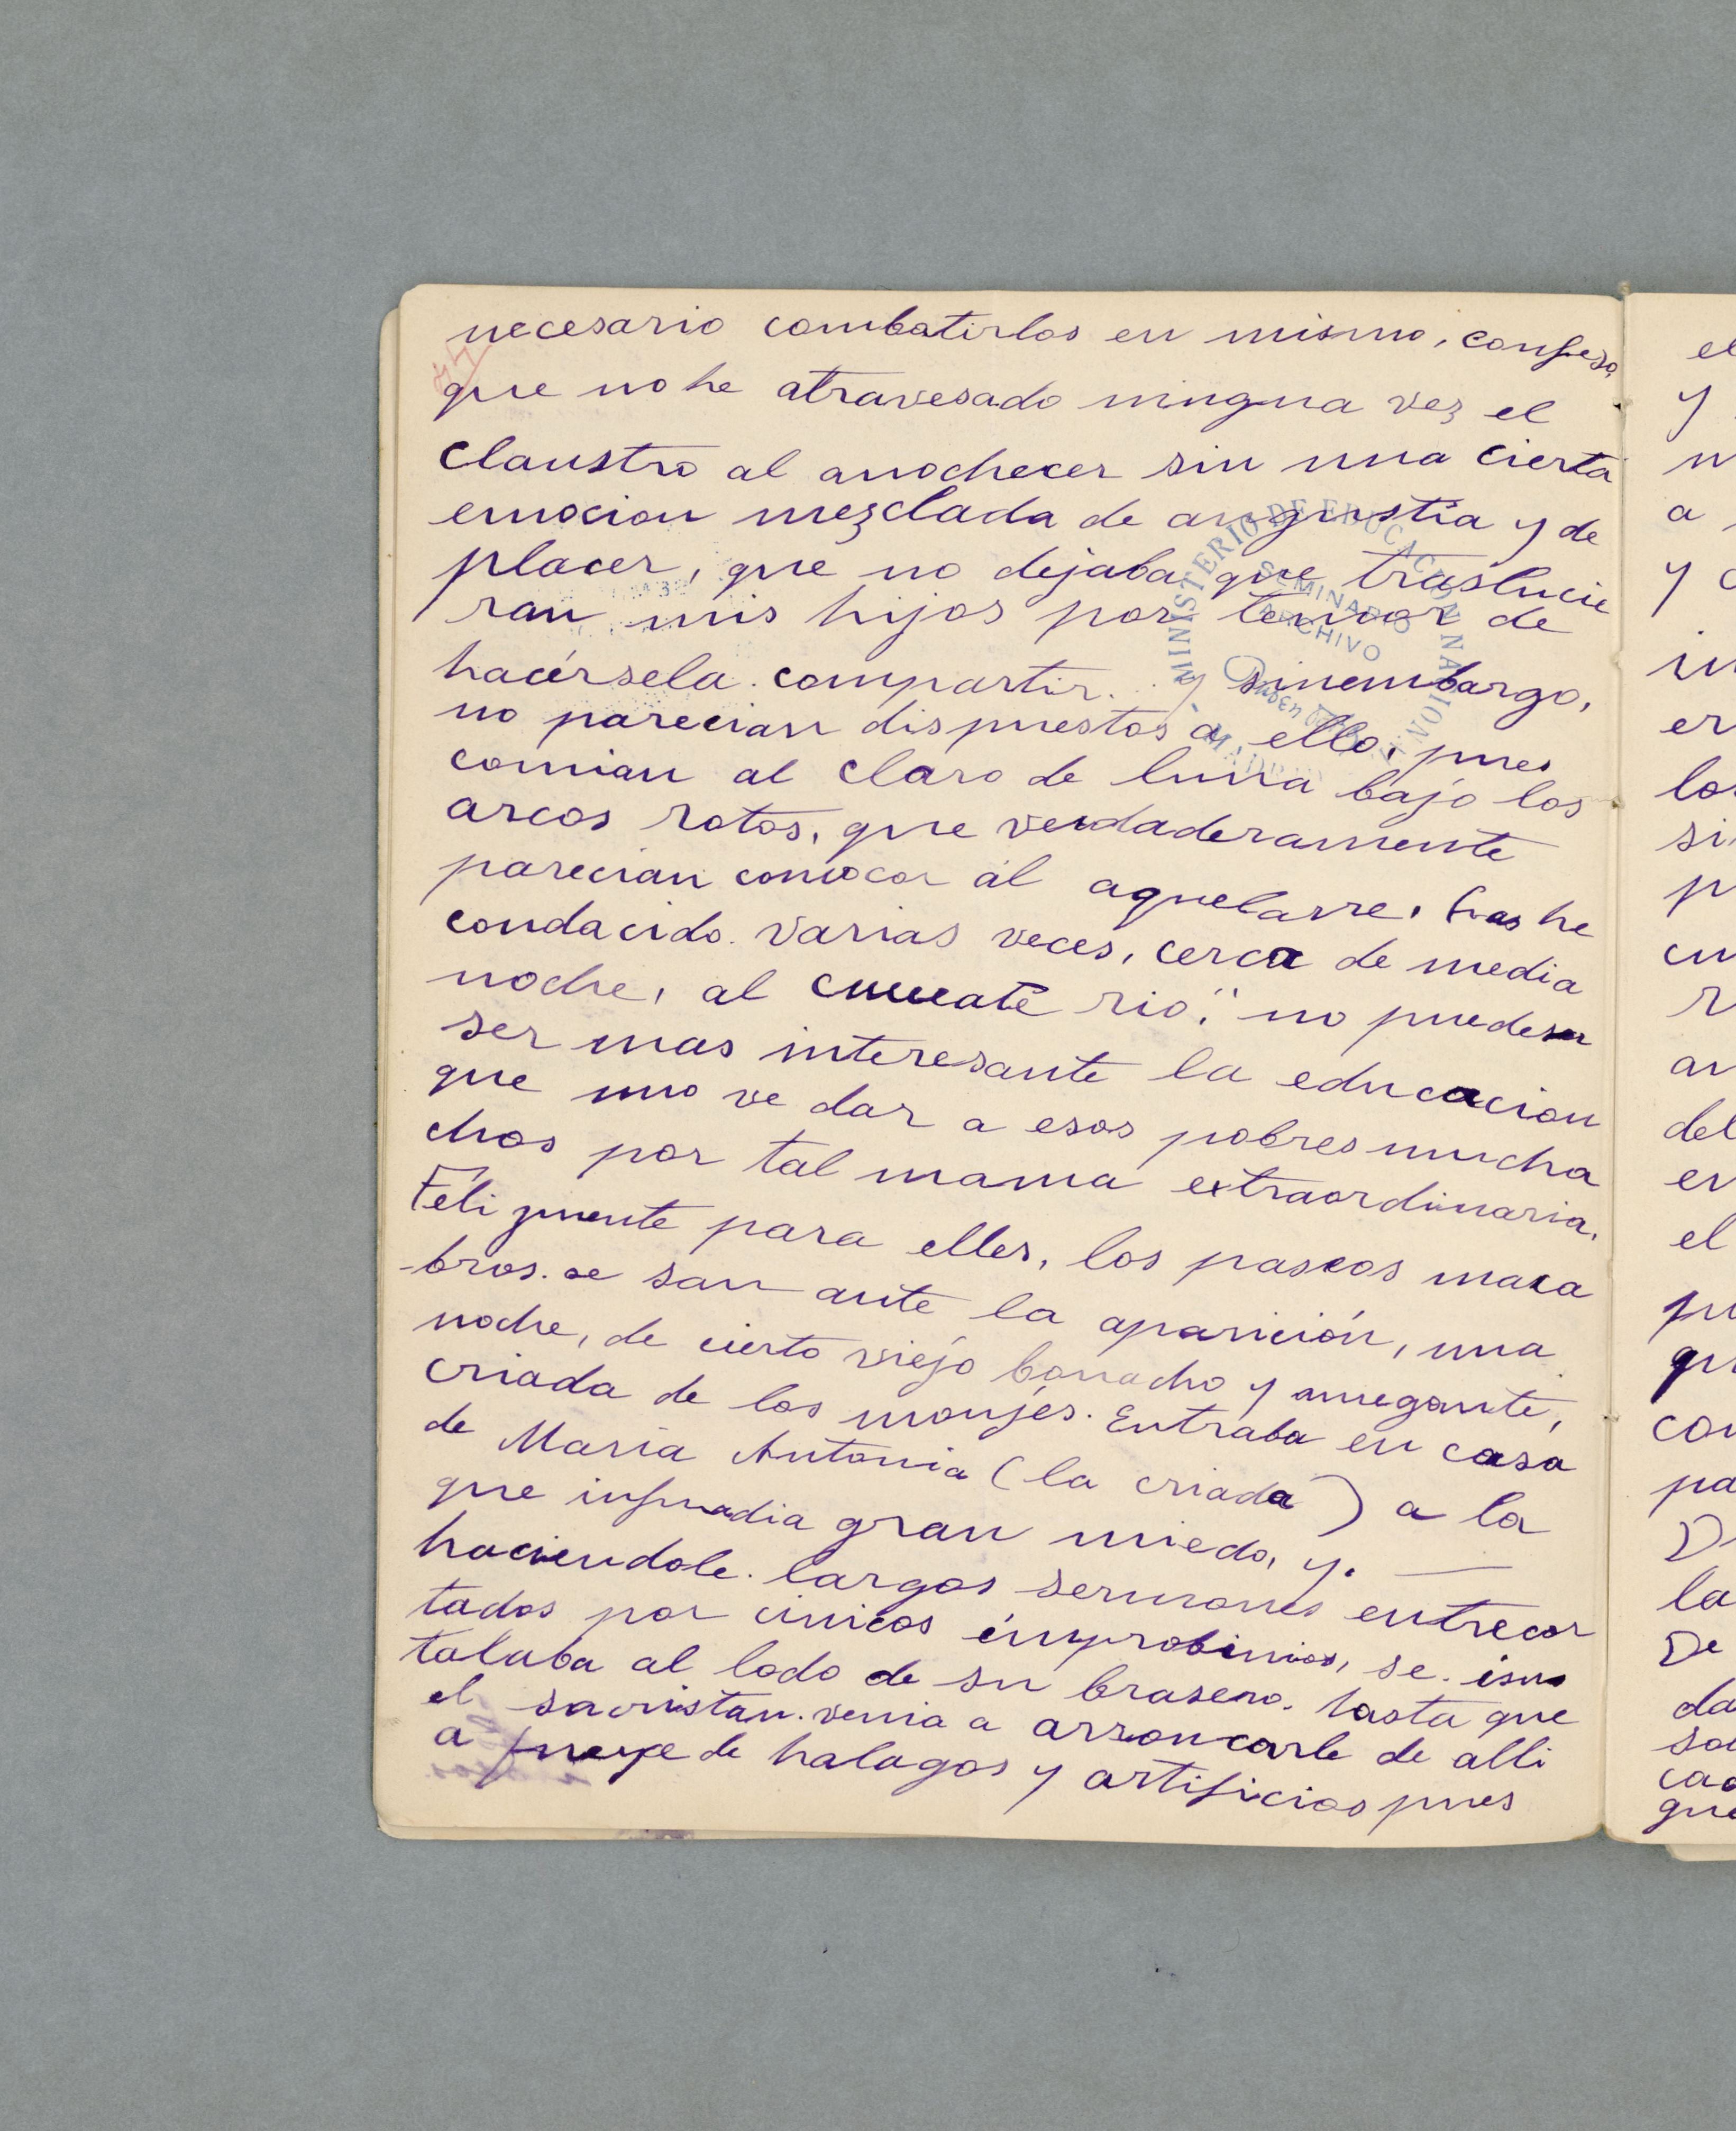 77
necesario combatirlos en mismo, confieso,
que no he atravesado ninguna vez el
claustro al anochecer sin una cierta
emocion mezclada de angustia y de
placer, que no dejaba que traslucie
ran mis hijos por temor de
hacérsela compartir. y sinembargo,
no parecian dispuestos a ello, pues
comian al claro de luna bajo los
arcos rotos, que verdaderamente
parecian convocar al aquelarre. Los he
conducido varias veces, cerca de media
noche, al
no pueden
ser mas interesante la educacion
que uno ve dar a esos pobres mucha
chos por tal mama extraordinaria.
Felizmente para elles, los paseos maca
-bros. se san ante la aparición, una
noche, de cierto viejo borracho y
criada de los monjes. Entraba en casa
de Maria Antonia (la criada) a la
que infundia gran miedo, y.
haciendole. largos sermones entrecor
tados por cinicos improbios, se ins
talaba al lado de su brasero. hasta que
el sacristan. venia a arrancarle de alli
a fuerza de halagos y artificios pues
MINISTERIO DE EDUCACION NACIONAL
SEMINARIO
ARCHIVO
Rubén Darío
el
y
a
y
er
los
si
p
cu
r
del
en
el
pu
qu
con
pa
la
De
da
que